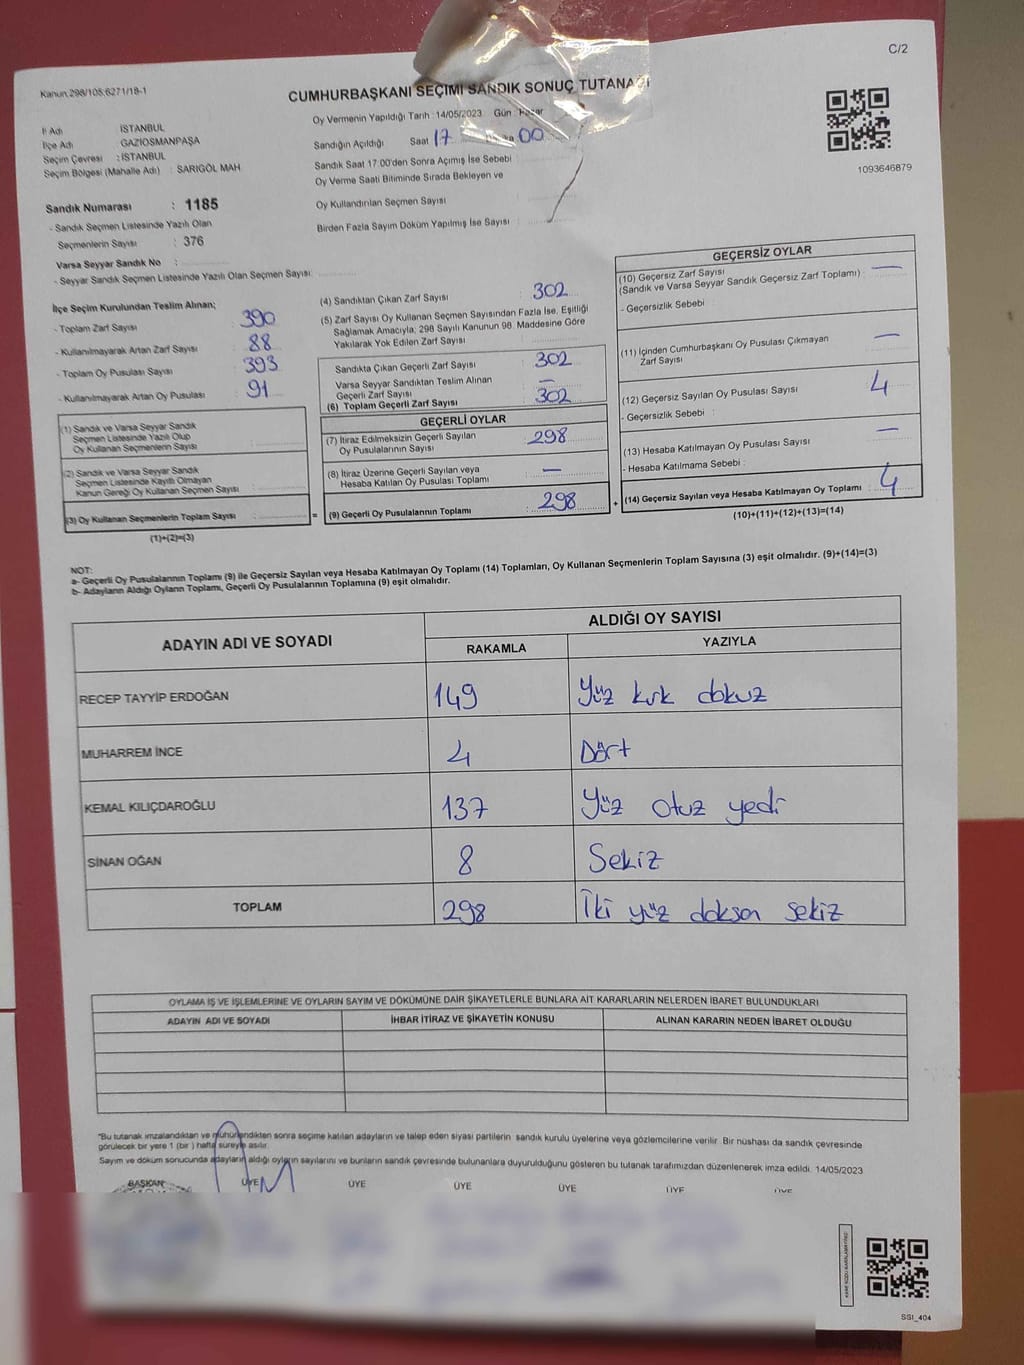 C/2
Kanun.298/105.6271/18-1
CUMHURBAŞKANI SEÇİMİ SANDIK SONUÇ TUTANAĞI
Oy Vermenin Yapıldığı Tarih :14/05/2023 Gün : Pazar
Sandığın Açıldığı Saat 17 00
Sandık Saat 17:00'den Sonra Açımış İse Sebebi
Oy Verme Saati Bitiminde Sırada Bekleyen ve
Oy Kullandırılan Seçmen Sayısı
Birden Fazla Sayım Döküm Yapılmış İse Sayısı
İl Adı : İSTANBUL
İlçe Adı : GAZİOSMANPAŞA
Seçim Çevresi : İSTANBUL
Seçim Bölgesi (Mahalle Adı) : SARIGÖL MAH
1093646879
Sandık Numarası : 1185
- Sandık Seçmen Listesinde Yazılı Olan
Seçmenlerin Sayısı : 376
Varsa Seyyar Sandık No :
- Seyyar Sandık Seçmen Listesinde Yazılı Olan Seçmen Sayısı:
İlçe Seçim Kurulundan Teslim Alınan;
- Toplam Zarf Sayısı : 390
- Kullanılmayarak Artan Zarf Sayısı : 88
- Toplam Oy Pusulası Sayısı : 393
- Kullanılmayarak Artan Oy Pusulası : 91
(1) Sandık ve Varsa Seyyar Sandık
Seçmen Listesinde Yazılı Olup
Oy Kullanan Seçmenlerin Sayısı
(2) Sandık ve Varsa Seyyar Sandık
Seçmen Listesinde Kayıtlı Olmayan
Kanun Gereği Oy Kullanan Seçmen Sayısı
(3) Oy Kullanan Seçmenlerin Toplam Sayısı
(1)+(2)=(3)
(4) Sandıktan Çıkan Zarf Sayısı : 302
(5) Zarf Sayısı Oy Kullanan Seçmen Sayısından Fazla İse, Eşitliği
Sağlamak Amacıyla; 298 Sayılı Kanunun 98. Maddesine Göre
Yakılarak Yok Edilen Zarf Sayısı
Sandıkta Çıkan Geçerli Zarf Sayısı : 302
Varsa Seyyar Sandıktan Teslim Alınan
Geçerli Zarf Sayısı : —
(6) Toplam Geçerli Zarf Sayısı : 302
GEÇERLİ OYLAR
(7) İtiraz Edilmeksizin Geçerli Sayılan
Oy Pusulalarının Sayısı : 298
(8) İtiraz Üzerine Geçerli Sayılan veya
Hesaba Katılan Oy Pusulası Toplamı : —
= (9) Geçerli Oy Pusulalarının Toplamı : 298 +
GEÇERSİZ OYLAR
(10) Geçersiz Zarf Sayısı
(Sandık ve Varsa Seyyar Sandık Geçersiz Zarf Toplamı) : —
- Geçersizlik Sebebi
(11) İçinden Cumhurbaşkanı Oy Pusulası Çıkmayan
Zarf Sayısı —
(12) Geçersiz Sayılan Oy Pusulası Sayısı : 4
- Geçersizlik Sebebi :
(13) Hesaba Katılmayan Oy Pusulası Sayısı : —
- Hesaba Katılmama Sebebi :
(14) Geçersiz Sayılan veya Hesaba Katılmayan Oy Toplamı : 4
(10)+(11)+(12)+(13)=(14)
NOT:
a- Geçerli Oy Pusulalarının Toplamı (9) ile Geçersiz Sayılan veya Hesaba Katılmayan Oy Toplamı (14) Toplamları, Oy Kullanan Seçmenlerin Toplam Sayısına (3) eşit olmalıdır. (9)+(14)=(3)
b- Adayların Aldığı Oyların Toplamı, Geçerli Oy Pusulalarının Toplamına (9) eşit olmalıdır.
ADAYIN ADI VE SOYADI
ALDIĞI OY SAYISI
RAKAMLA YAZIYLA
RECEP TAYYİP ERDOĞAN 149 Yüz kırk dokuz
MUHARREM İNCE 4 Dört
KEMAL KILIÇDAROĞLU 137 Yüz otuz yedi
SİNAN OĞAN 8 Sekiz
TOPLAM 298 İki yüz doksan sekiz
OYLAMA İŞ VE İŞLEMLERİNE VE OYLARIN SAYIM VE DÖKÜMÜNE DAİR ŞİKAYETLERLE BUNLARA AİT KARARLARIN NELERDEN İBARET BULUNDUKLARI
ADAYIN ADI VE SOYADI İHBAR İTİRAZ VE ŞİKAYETİN KONUSU ALINAN KARARIN NEDEN İBARET OLDUĞU
*Bu tutanak imzalandıktan ve mühürlendikten sonra seçime katılan adayların ve talep eden siyasi partilerin sandık kurulu üyelerine veya gözlemcilerine verilir. Bir nüshası da sandık çevresinde
görülecek bir yere 1 (bir ) hafta süreyle asılır.
Sayım ve döküm sonucunda adayların aldığı oyların sayılarını ve bunların sandık çevresinde bulunanlara duyurulduğunu gösteren bu tutanak tarafımızdan düzenlenerek imza edildi. 14/05/2023
BAŞKAN ÜYE ÜYE ÜYE ÜYE ÜYE ÜYE
SSI_404